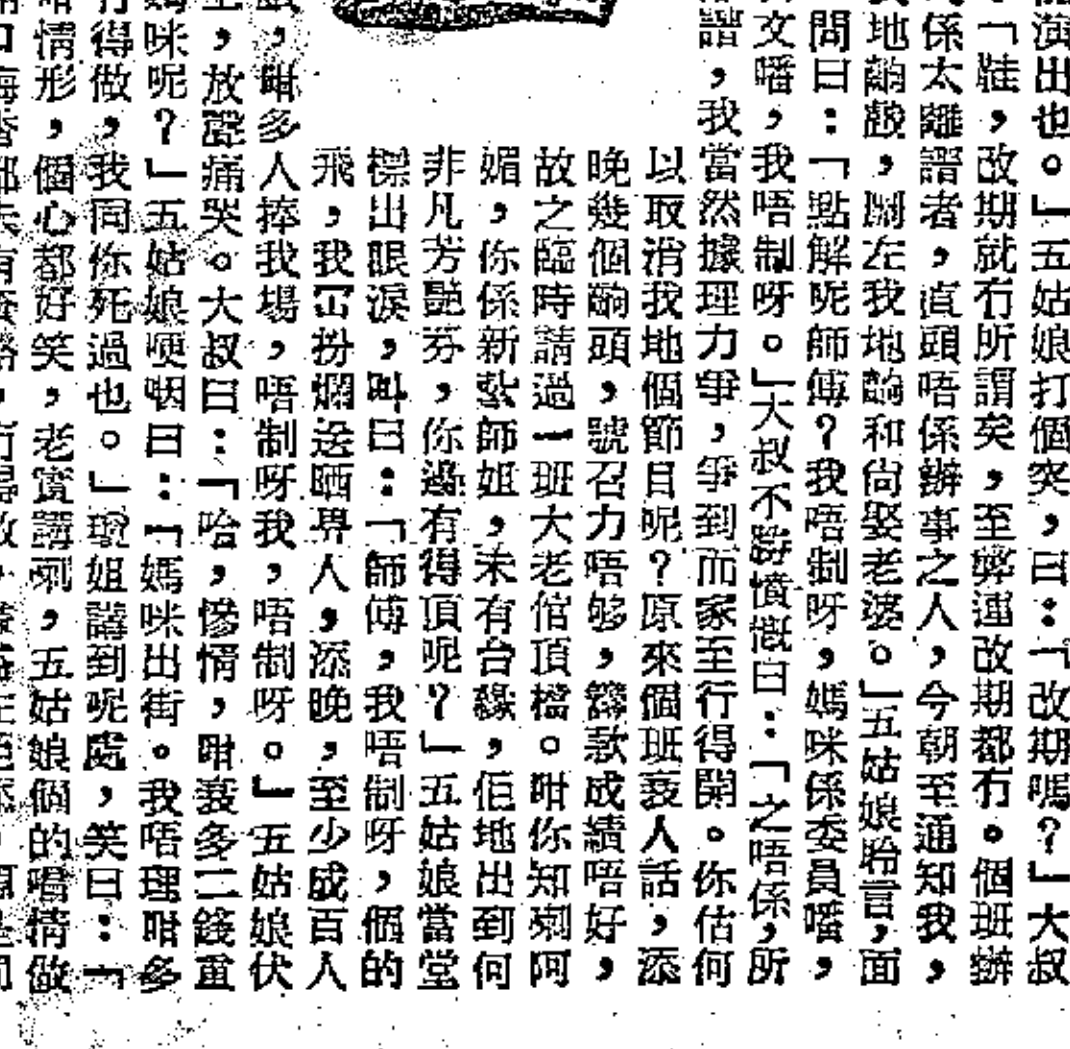 演出也。」五姑娘打個突，曰：「改期嗎？」大叔
「鞋，改期就冇所謂矣，至弊連改期都冇。個班辦
係太離譜者，直頭唔係辦事之人，今朝至通知我，
地齣戲，關左我地齣和尙娶老婆。」五姑娘聆言，面
問曰：「點解呢師傅？我唔制呀，媽咪係委員噃，
文噃，我唔制呀。」大叔不勝憤慨曰：「之唔係，所
譜，我當然據理力爭，爭到而家至行得開。你估何
以取消我地個節目呢？原來個班衰人話，添
晚幾個齣頭，號召力唔够，籌款成績唔好，
故之臨時請過一班大老倌頂檔。咁你知喇阿
媚，你係新紮師姐，未有台緣，佢地出到何
非凡芳艷芬，你邊有得頂呢？」五姑娘當堂
標出眼淚，叫曰：「師傅，我唔制呀，個的
飛，我冚扮爛送晒畀人，添晚，至少成百人
，咁多人捧我塲，唔制呀我，唔制呀。」五姑娘伏
，放聲痛哭。大叔曰：「哈，慘情，咁衰多二錢重
咪呢？」五姑娘哽咽曰：「媽咪出街。我唔理咁多
得做，我同你死過也。」琼姐講到呢處，笑曰：「
情形，個心都好笑，老實講喇，五姑娘個的噆情做